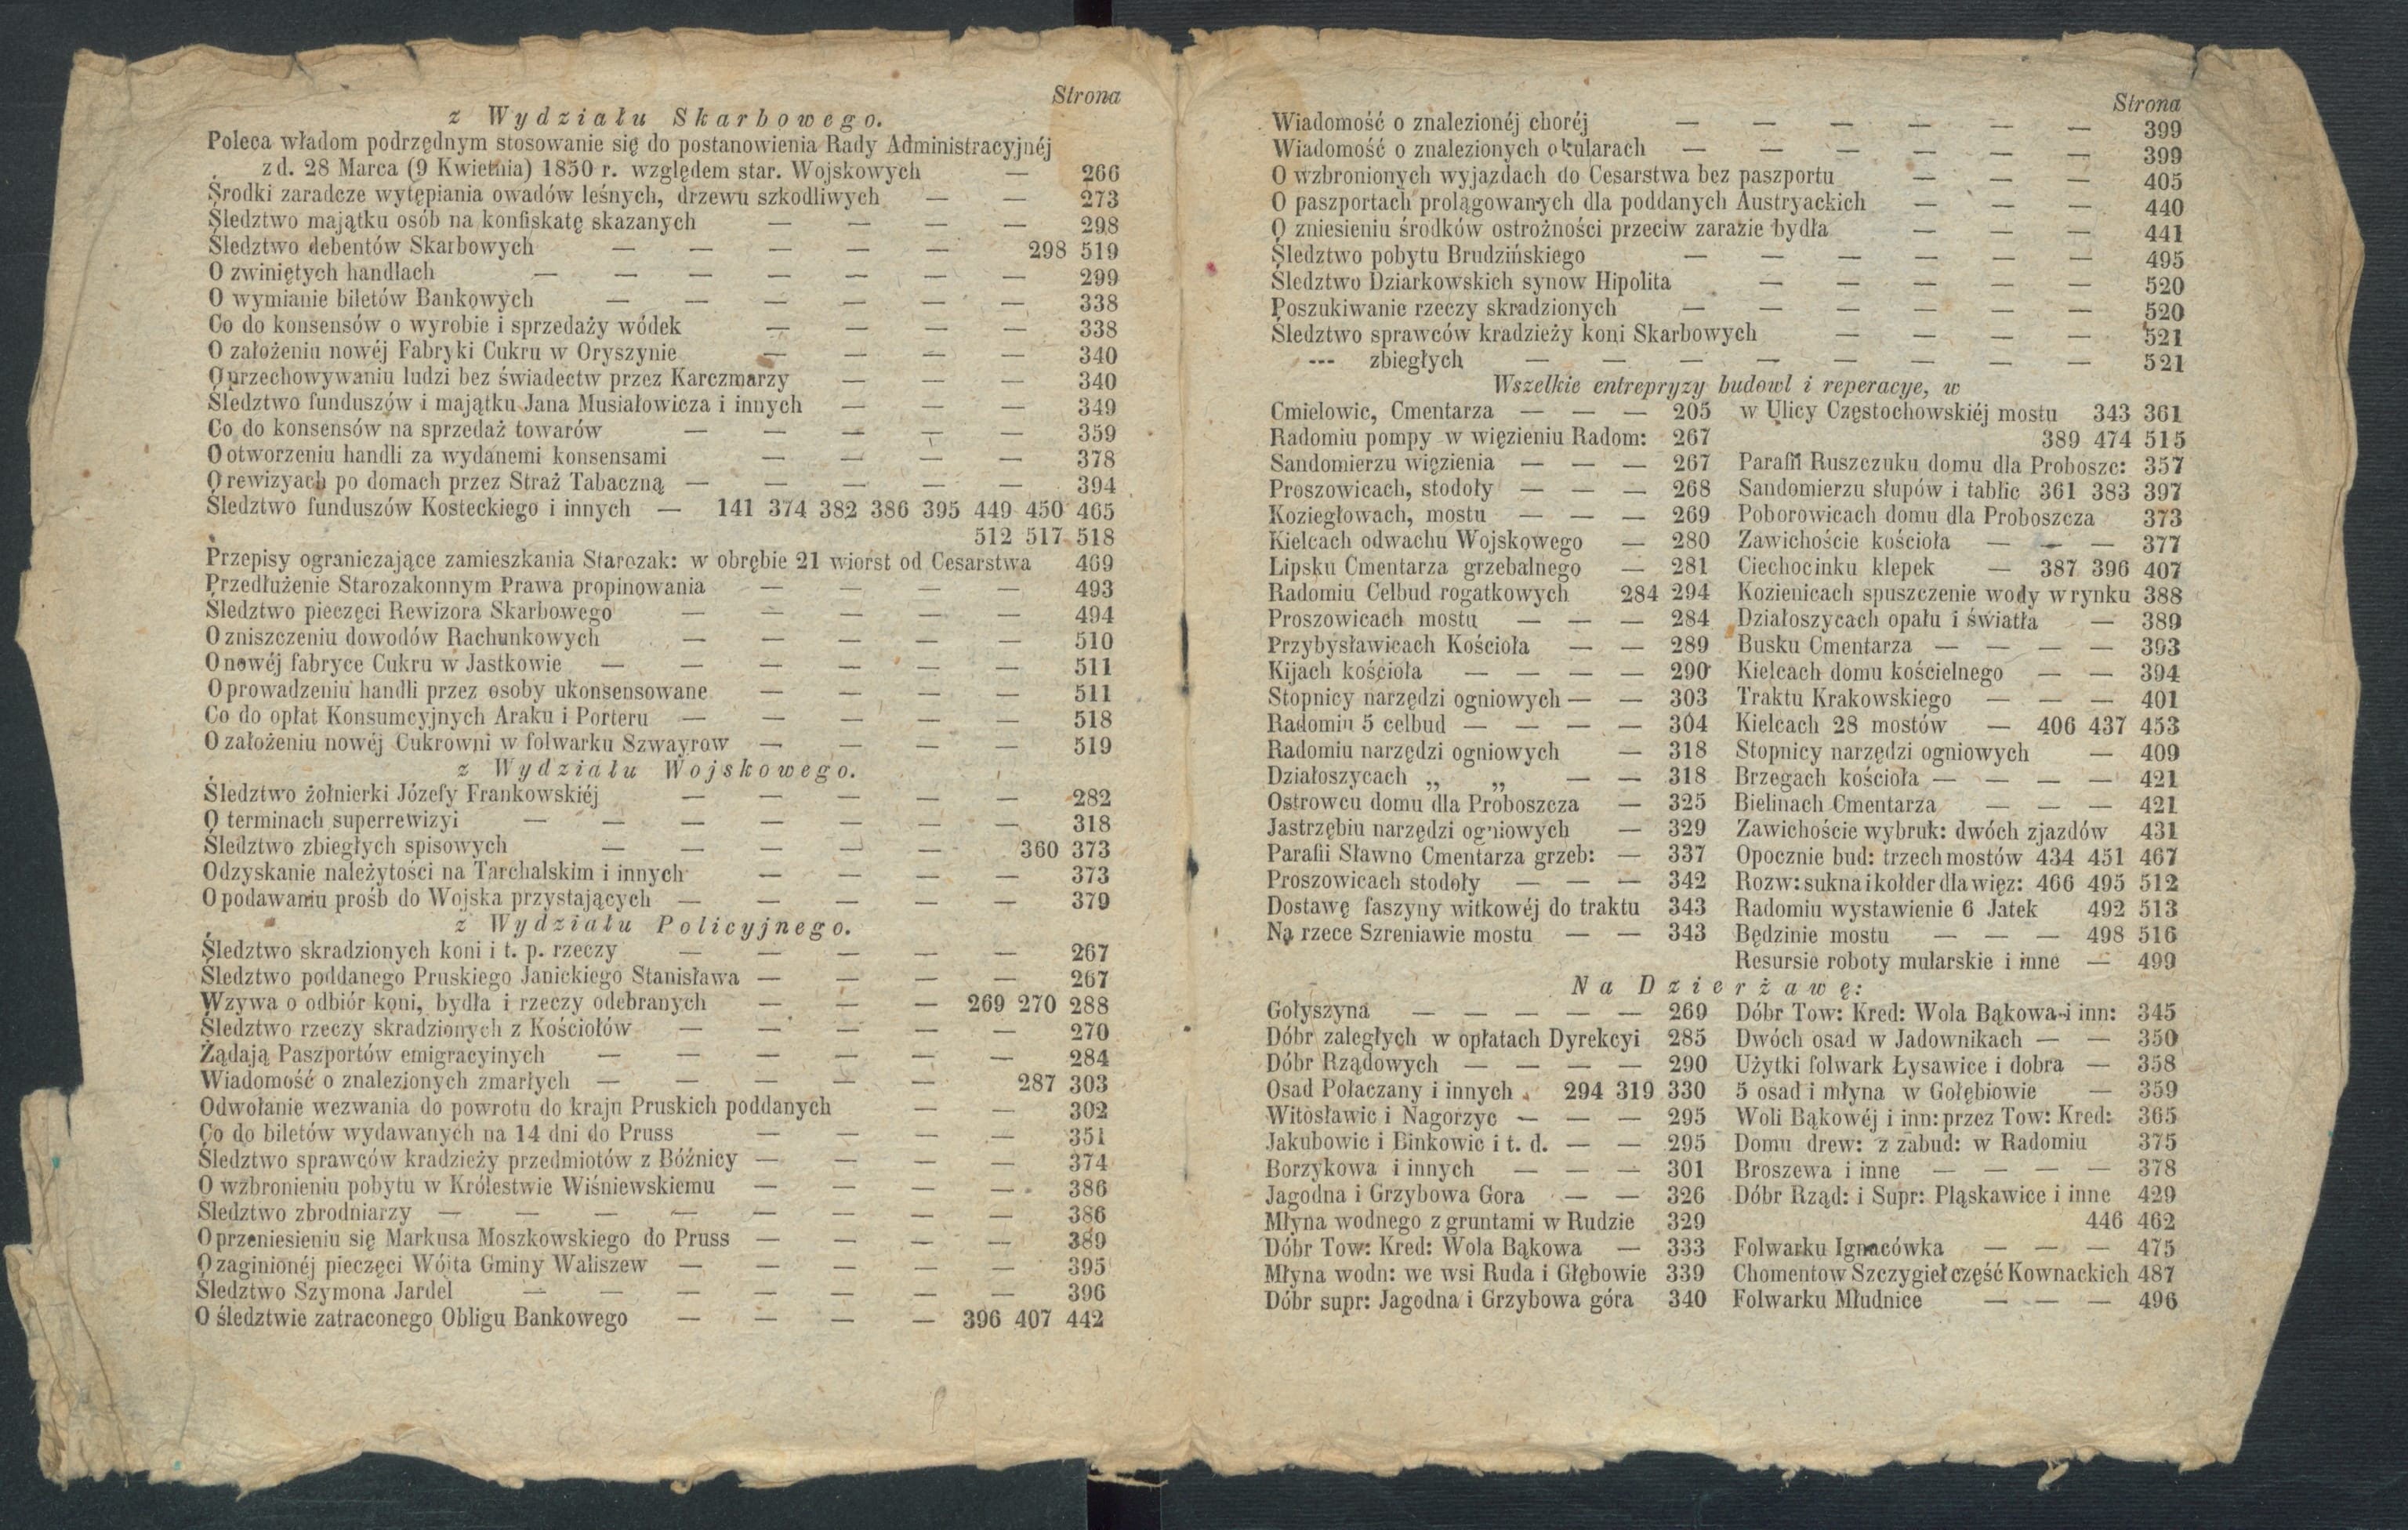 Strona
z Wydziału Skarbowego.
Poleca władom podrzędnym stosowanie się do postanowienia Rady Administracyjnéj
z d. 28 Marca (9 Kwietnia) 1850 r. względem star. Wojskowych — 266
Środki zaradcze wytępiania owadów leśnych, drzewu szkodliwych — — 273
Śledztwo majątku osób na konfiskatę skazanych — — — — 298
Śledztwo debentów Skarbowych — — — — — 298 519
O zwiniętych handlach — — — — — — — 299
O wymianie biletów Bankowych — — — — — — 338
Co do konsensów o wyrobie i sprzedaży wódek — — — — 338
O założeniu nowéj Fabryki Cukru w Oryszynie — — — — 340
O przechowywaniu ludzi bez świadectw przez Karczmarzy — — — 340
Śledztwo funduszów i majątku Jana Musiałowicza i innych — — — 349
Co do konsensów na sprzedaż towarów — — — — — 359
O otworzeniu handli za wydanemi konsensami — — — — 378
O rewizyach po domach przez Straż Tabaczną — — — — — 394
Śledztwo funduszów Kosteckiego i innych — 141 374 382 386 395 449 450 465
512 517 518
Przepisy ograniczające zamieszkania Starozak: w obrębie 21 wiorst od Cesarstwa 469
Przedłużenie Starozakonnym Prawa propinowania — — — — 493
Śledztwo pieczęci Rewizora Skarbowego — — — — — 494
O zniszczeniu dowodów Rachunkowych — — — — — 510
O nowéj fabryce Cukru w Jastkowie — — — — — — 511
O prowadzeniu handli przez osoby ukonsensowane — — — — 511
Co do opłat Konsumcyjnych Araku i Porteru — — — — — 518
O założeniu nowéj Cukrowni w folwarku Szwayrow — — — — 519
z Wydziału Wojskowego.
Śledztwo żołnierki Józefy Frankowskiéj — — — — — 282
O terminach superrewizyi — — — — — — — 318
Śledztwo zbiegłych spisowych — — — — — 360 373
Odzyskanie należytości na Tarchalskim i innych — — — — 373
O podawaniu prośb do Wojska przystających — — — — — 379
z Wydziału Policyjnego.
Śledztwo skradzionych koni i t. p. rzeczy — — — — — 267
Śledztwo poddanego Pruskiego Janickiego Stanisława — — — — 267
Wzywa o odbiór koni, bydła i rzeczy odebranych — — — 269 270 288
Śledztwo rzeczy skradzionych z Kościołów — — — — — 270
Żądają Paszportów emigracyinych — — — — — — 284
Wiadomość o znalezionych zmarłych — — — — — 287 303
Odwołanie wezwania do powrotu do kraju Pruskich poddanych — — 302
Co do biletów wydawanych na 14 dni do Pruss — — — — 351
Śledztwo sprawców kradzieży przedmiotów z Bóźnicy — — — — 374
O wzbronieniu pobytu w Królestwie Wiśniewskiemu — — — — 386
Śledztwo zbrodniarzy — — — — — — — — 386
O przeniesieniu się Markusa Moszkowskiego do Pruss — — — — 389
O zaginionéj pieczęci Wójta Gminy Waliszew — — — — — 395
Śledztwo Szymona Jardel — — — — — — — 396
O śledztwie zatraconego Obligu Bankowego — — — — 396 407 442
Strona
Wiadomość o znalezionéj choréj — — — — — — 399
Wiadomość o znalezionych okularach — — — — — — 399
O wzbronionych wyjazdach do Cesarstwa bez paszportu — — — 405
O paszportach prolągowanych dla poddanych Austryackich — — — 440
O zniesieniu środków ostrożności przeciw zarazie bydła — — — 441
Śledztwo pobytu Brudzińskiego — — — — — — 495
Śledztwo Dziarkowskich synow Hipolita — — — — — 520
Poszukiwanie rzeczy skradzionych — — — — — — 520
Śledztwo sprawców kradzieży koni Skarbowych — — — — 521
--- zbiegłych — — — — — — — — 521
Wszelkie entrepryzy budowl i reperacye, w
Cmielowic, Cmentarza — — — 205
Radomiu pompy w więzieniu Radom: 267
Sandomierzu więzienia — — — 267
Proszowicach, stodoły — — — 268
Koziegłowach, mostu — — — 269
Kielcach odwachu Wojskowego — 280
Lipsku Cmentarza grzebalnego — 281
Radomiu Celbud rogatkowych 284 294
Proszowicach mostu — — — 284
Przybysławicach Kościoła — — 289
Kijach kościoła — — — — 290
Stopnicy narzędzi ogniowych — — 303
Radomiu 5 celbud — — — — 304
Radomiu narzędzi ogniowych — 318
Działoszycach „ „ — — 318
Ostrowcu domu dla Proboszcza — 325
Jastrzębiu narzędzi ogniowych — 329
Parafii Sławno Cmentarza grzeb: — 337
Proszowicach stodoły — — — 342
Dostawę faszyny witkowéj do traktu 343
Na rzece Szreniawie mostu — — 343
w Ulicy Częstochowskiéj mostu 343 361
389 474 515
Parafii Ruszczuku domu dla Proboszc: 357
Sandomierzu słupów i tablic 361 383 397
Poborowicach domu dla Proboszcza 373
Zawichoście kościoła — — — 377
Ciechocinku klepek — 387 396 407
Kozienicach spuszczenie wody w rynku 388
Działoszycach opału i światła — 389
Busku Cmentarza — — — — 393
Kielcach domu kościelnego — — 394
Traktu Krakowskiego — — — 401
Kielcach 28 mostów — 406 437 453
Stopnicy narzędzi ogniowych — 409
Brzegach kościoła — — — — 421
Bielinach Cmentarza — — — 421
Zawichoście wybruk: dwóch zjazdów 431
Opocznie bud: trzech mostów 434 451 467
Rozw: sukna i kołder dla więz: 466 495 512
Radomiu wystawienie 6 Jatek 492 513
Będzinie mostu — — — 498 516
Resursie roboty mularskie i inne — 499
Na Dzierżawę:
Gołyszyna — — — — — 269
Dóbr zaległych w opłatach Dyrekcyi 285
Dóbr Rządowych — — — — 290
Osad Połaczany i innych 294 319 330
Witosławic i Nagorzyc — — — 295
Jakubowic i Binkowic i t. d. — — 295
Borzykowa i innych — — — 301
Jagodna i Grzybowa Gora — — 326
Młyna wodnego z gruntami w Rudzie 329
Dóbr Tow: Kred: Wola Bąkowa — 333
Młyna wodn: we wsi Ruda i Głębowie 339
Dóbr supr: Jagodna i Grzybowa góra 340
Dóbr Tow: Kred: Wola Bąkowa i inn: 345
Dwóch osad w Jadownikach — — 350
Użytki folwark Łysawice i dobra — 358
5 osad i młyna w Gołębiowie — 359
Woli Bąkowéj i inn: przez Tow: Kred: 365
Domu drew: z zabud: w Radomiu 375
Broszewa i inne — — — — 378
Dóbr Rząd: i Supr: Pląskawice i inne 429
446 462
Folwarku Ignacówka — — — 475
Chomentow Szczygieł część Kownackich 487
Folwarku Młudnice — — — 496